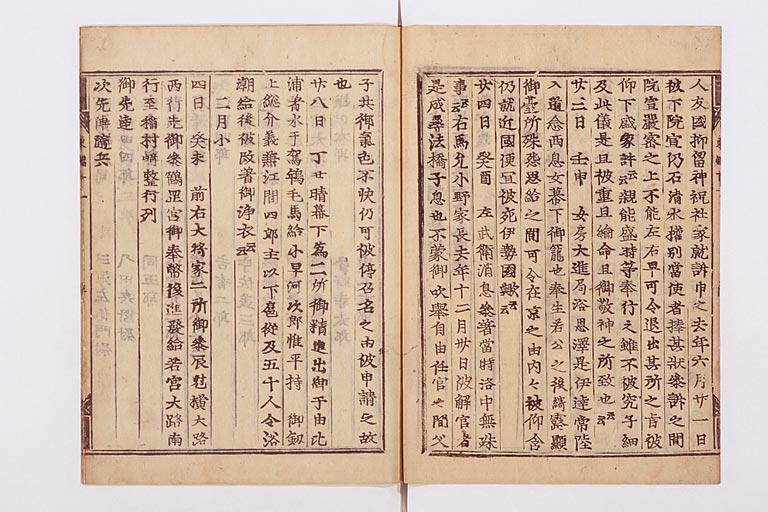 人友國抑留神祝社家就訴申之去年六月廿一日
被下院宣仍石清水權別當使者捧其狀参訴之間
院宣嚴密之上不能左右早可令退出其所之旨被
仰下盛家許云云親能盛時等奉行之雖不被究子細
及此儀是且被重且綸命且御敬神之所致也云云
廿三日 壬申 女房大進局浴恩澤是伊達常陸
入道念西息女幕下御籠也奉生若公之後縡露顯
御臺所殊怨思給之間可令在京之由内々被仰含
仍就近國便宜被宛伊勢國歟云云
廿四日 癸酉 左武衛消息参著當時洛中無殊
事云云右馬允小野家長去年十二月卅日被解官者
是成尋法橋子息也不蒙御吹擧自由任官之間父
子共御氣色不快仍可被停召名之由依申請之故
也
廿八日 丁丑晴幕下爲二所御精進出御于由比
浦著水干駕鴾毛馬給小早河次郎惟平持 御釼
上総介義兼江間四郎主以下扈從及五十人令浴
潮給後被改著御浄衣云云
二月小
四日 癸未 前右大將家二所御参辰尅横大路
西行先御参鶴罡宮御奉幣後進發給若宮大路南
行至稻村﨑整行列
御先達
次先陣隨兵